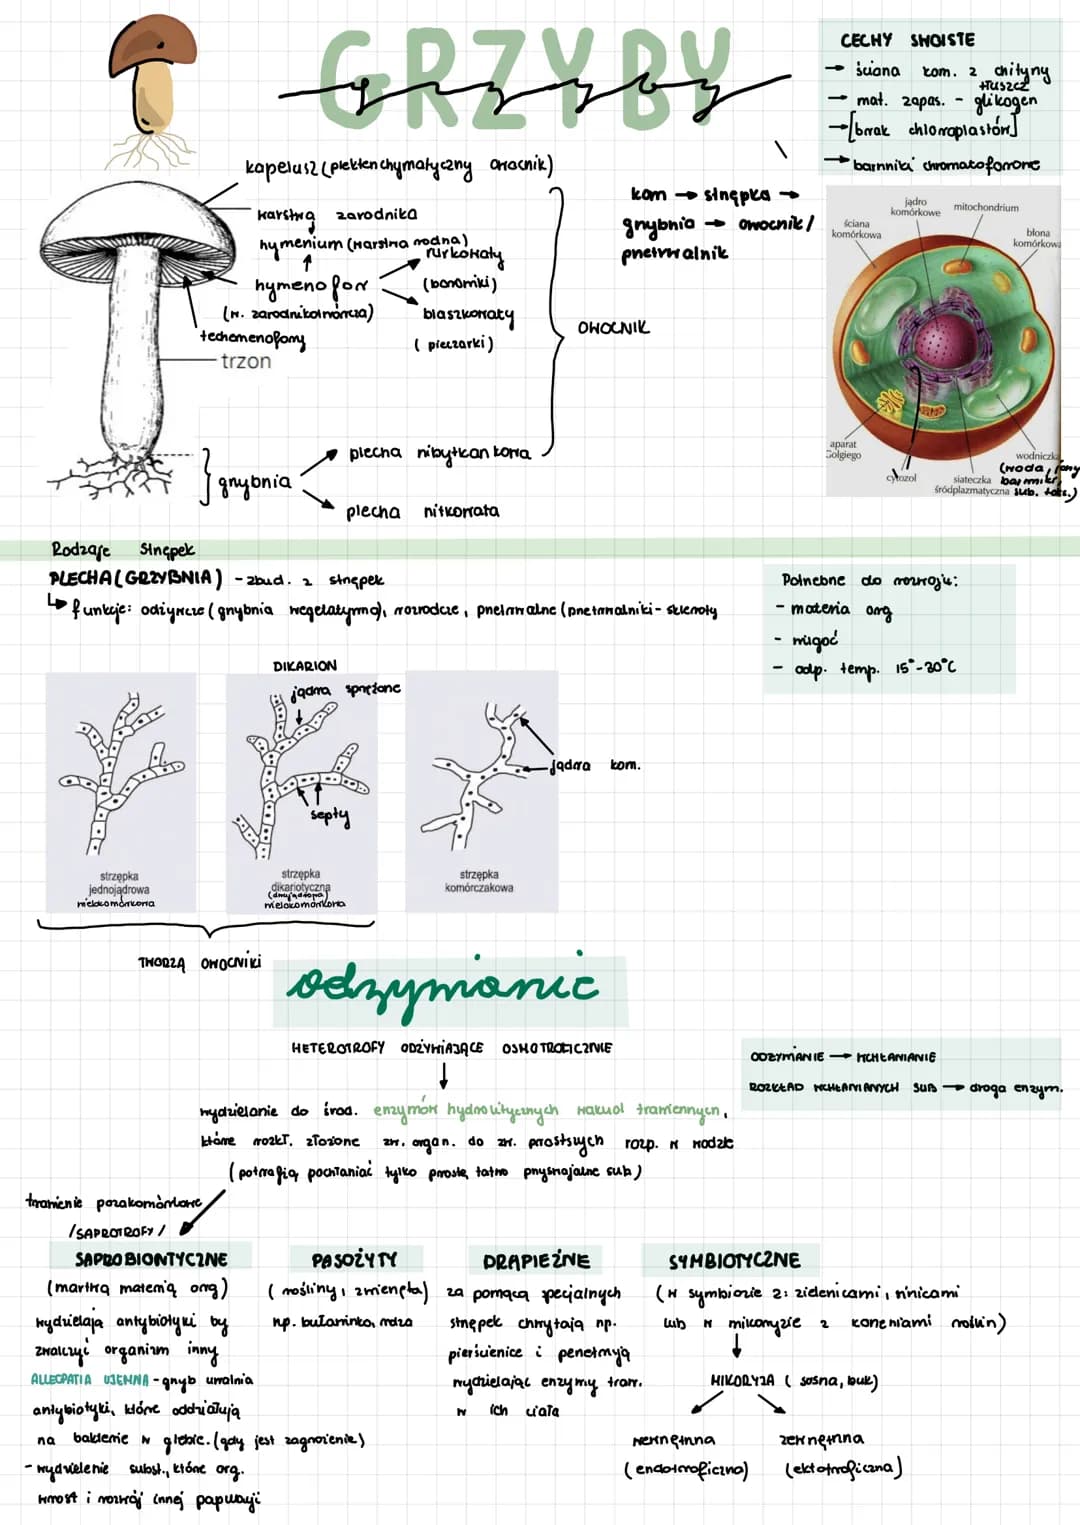 GRZYBY
grzyby
CECHY SWOISTE
→ ściana kom. z chityny
tłuszcz
→ mat. zapas. - glikogen
→ [brak chloroplastów]
→ barwniki chromatoforowe
kapelusz (plektenchymatyczny owocnik)
warstwa zarodnika
hymenium (warstwa rodna)
rurkowaty
hymenofor
(borowiki)
(w. zarodnikotwórcza)
blaszkowaty
(pieczarki)
trzon
OWOCNIK
kom → strzępka →
grzybnia → owocnik/
przetrwalnik
grzybnia
plecha nibytkankowa
plecha nitkowata
jądro komórkowe
mitochondrium
ściana komórkowa
błona komórkowa
aparat Golgiego
cytozol
siateczka śródplazmatyczna
wodniczka
(woda, jony
barwniki,
sub. toks.)
Rodzaje strzępek
PLECHA (GRZYBNIA) - zbud. z strzępek
funkcje: odżywcze (grzybnia wegetatywna), rozrodcze, przetrwalne (przetrwalniki - skleroty
Potrzebne do rozwoju:
- materia org
- wilgoć
- odp. temp. 15°-30°C
DIKARION
jądra sprzężone
septy
jądra kom.
strzępka
jednojądrowa
wielokomórkowa
strzępka
dikariotyczna
(dwujądrowa)
wielokomórkowa
strzępka
komórczakowa
TWORZĄ OWOCNIKI
odżywianie
HETEROTROFY ODŻYWIAJĄCE OSMOTROFICZNIE
ODŻYWIANIE → WCHŁANIANIE
ROZKŁAD WCHŁANIANYCH SUB → droga enzym.
wydzielanie do środ. enzymów hydrolitycznych wakuol trawiennych,
które rozkł. złożone zw. organ. do zw. prostszych rozp. w wodzie
(potrafią pochłaniać tylko proste, łatwo przyswajalne sub)
trawienie pozakomórkowe
/SAPROTROFY/
SAPROBIONTYCZNE
(martwą materią org)
wydzielają antybiotyki by
zwalczyć organizm inny
ALLEOPATIA UJEMNA - grzyb uwalnia
antybiotyki, które oddziałują
na bakterie w glebie. (gdy jest zagrożenie)
- wydzielenie subst., które org.
wzrost i rozwój innej populacji
PASOŻYTY
(rośliny, zwierzęta)
np. buławinka, rdza
DRAPIEŻNE
za pomocą specjalnych
strzępek chwytają np.
pierścienice i penetrują
wydzielając enzymy traw.
w ich ciała
SYMBIOTYCZNE
(w symbiozie z: zielenicami, sinicami
lub w mikoryzie z korzeniami roślin)
MIKORYZA (sosna, buk)
wewnętrzna
(endotroficzna)
zewnętrzna
(ektotroficzna)